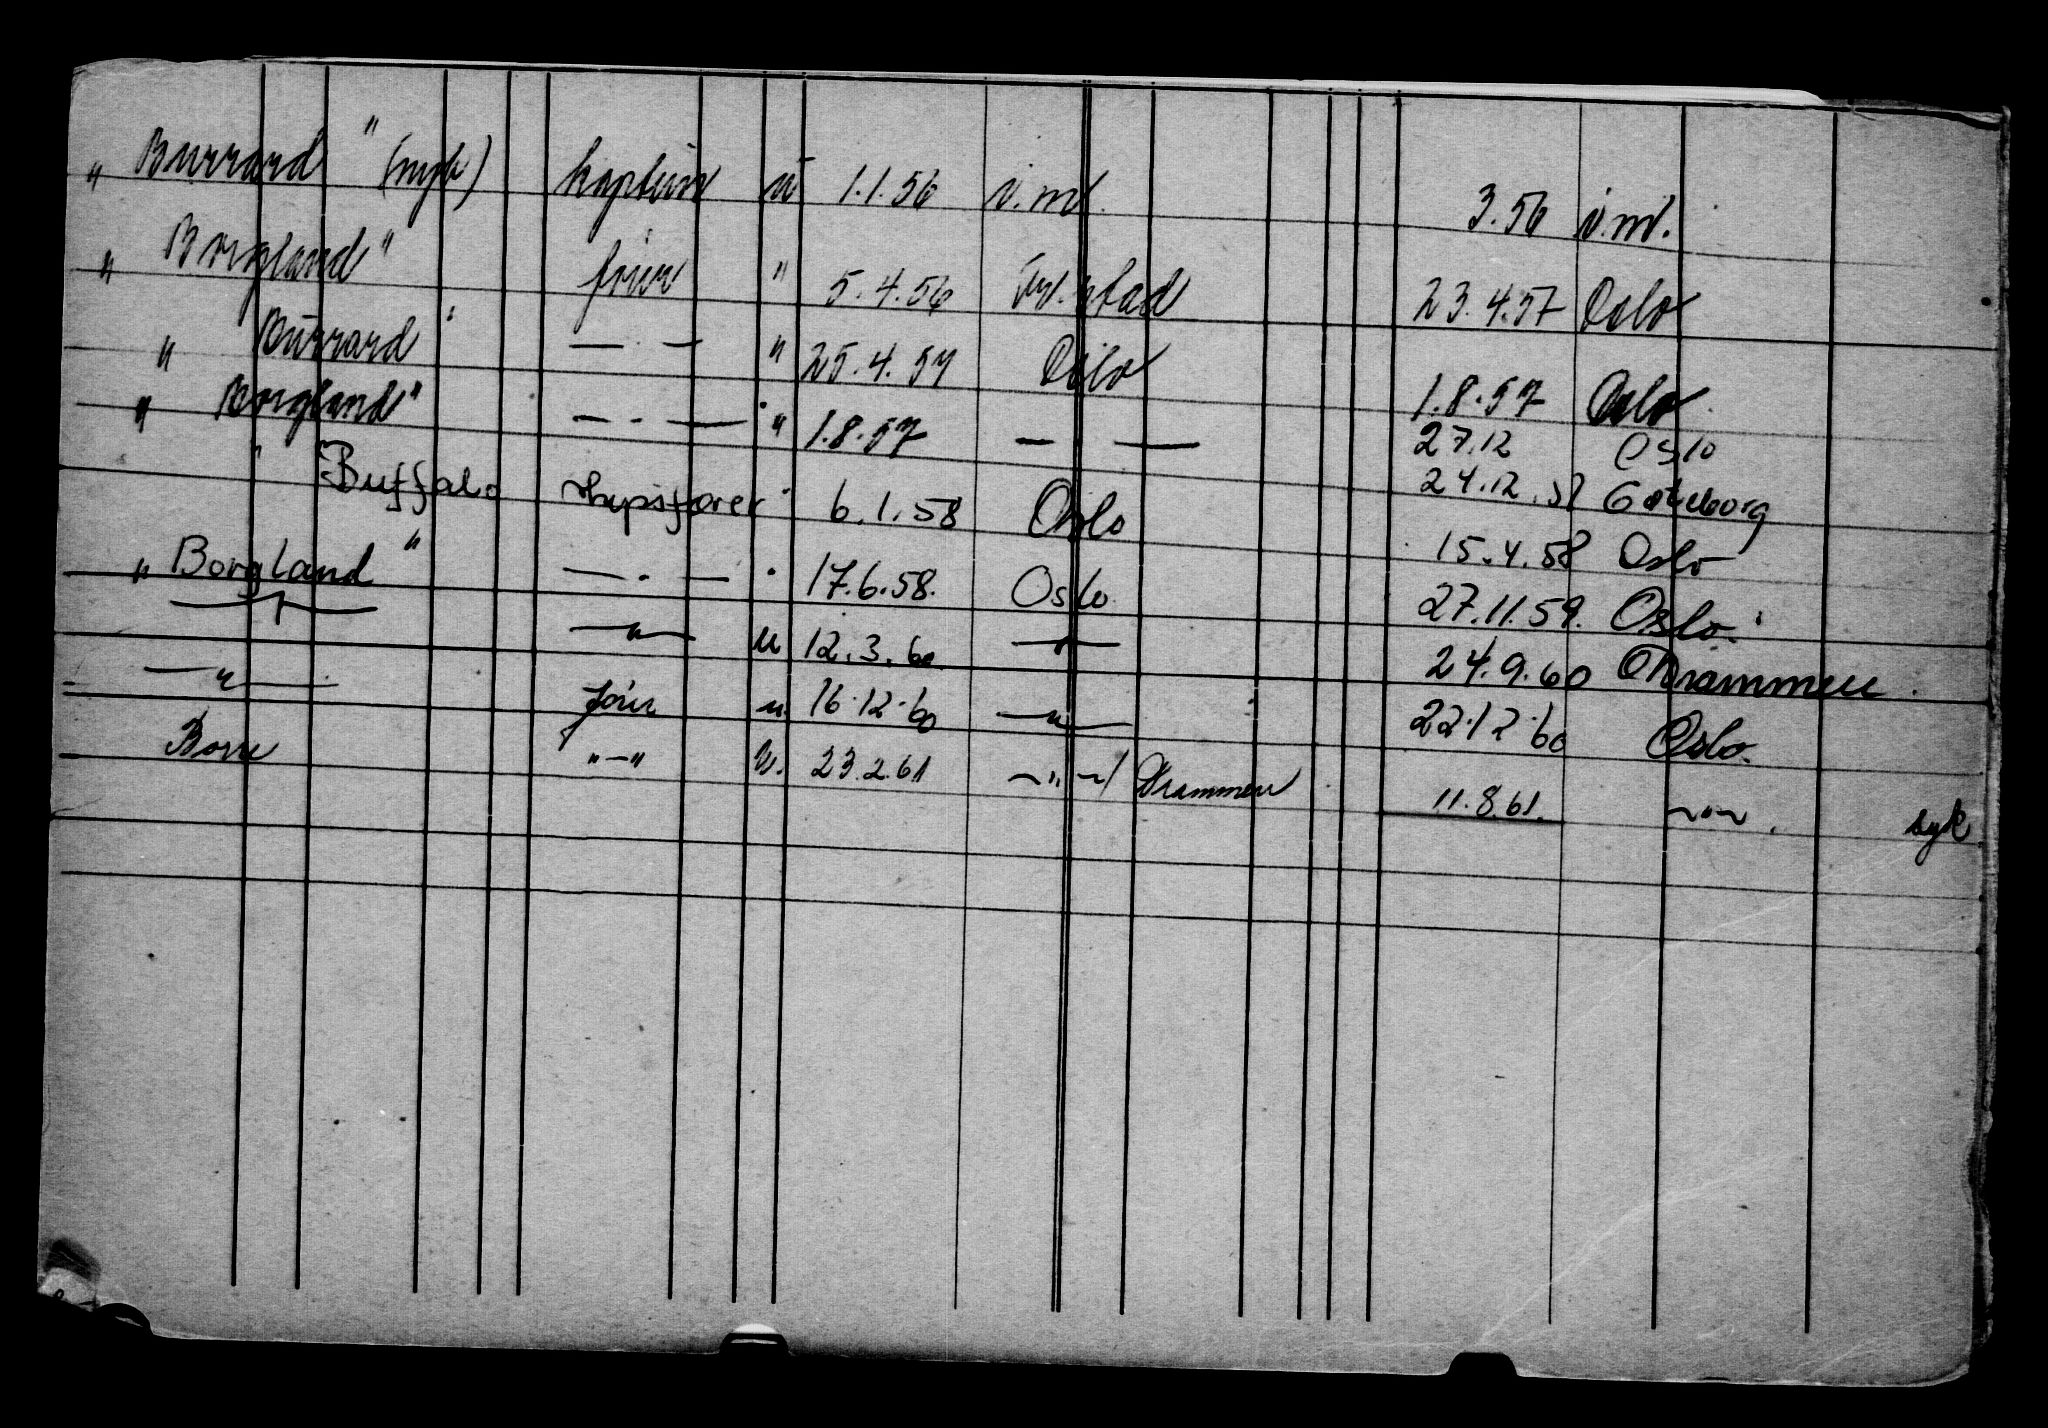 " Burrard " (nyb) kaptein u 1.1.56 i.ml. 3.56 i.ml.
" Borgland " fører " 5.4.56 Fr.stad 23.4.57 Oslo
" Burrard " — . — " 25.4.57 Oslo 1.8.57 Oslo
" Borgland " — . — " 1.8.57 — — 27.12 Oslo
24.12.57 Göteborg
" Buffalo skipsfører " 6.1.58 Oslo 15.4.58 Oslo
" Borgland " — . — " 17.6.58. Oslo 27.11.59. Oslo.
—"— —"— u 12.3.60 —"— 24.9.60 Drammen.
—"— fører u 16.12.60 —"— 22.12.60 Oslo.
Borre "—" u. 23.2.61 —"—/ Drammen 11.8.61. —"—. syk